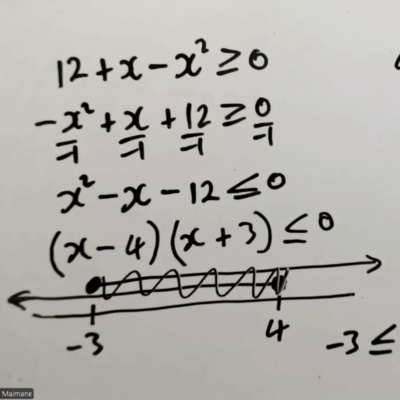 12 + x - x² ≥ 0
-x²/-1 + x/-1 + 12/-1 ≥ 0/-1
x² - x - 12 ≤ 0
(x - 4)(x + 3) ≤ 0
-3 4 -3 ≤
Maimane